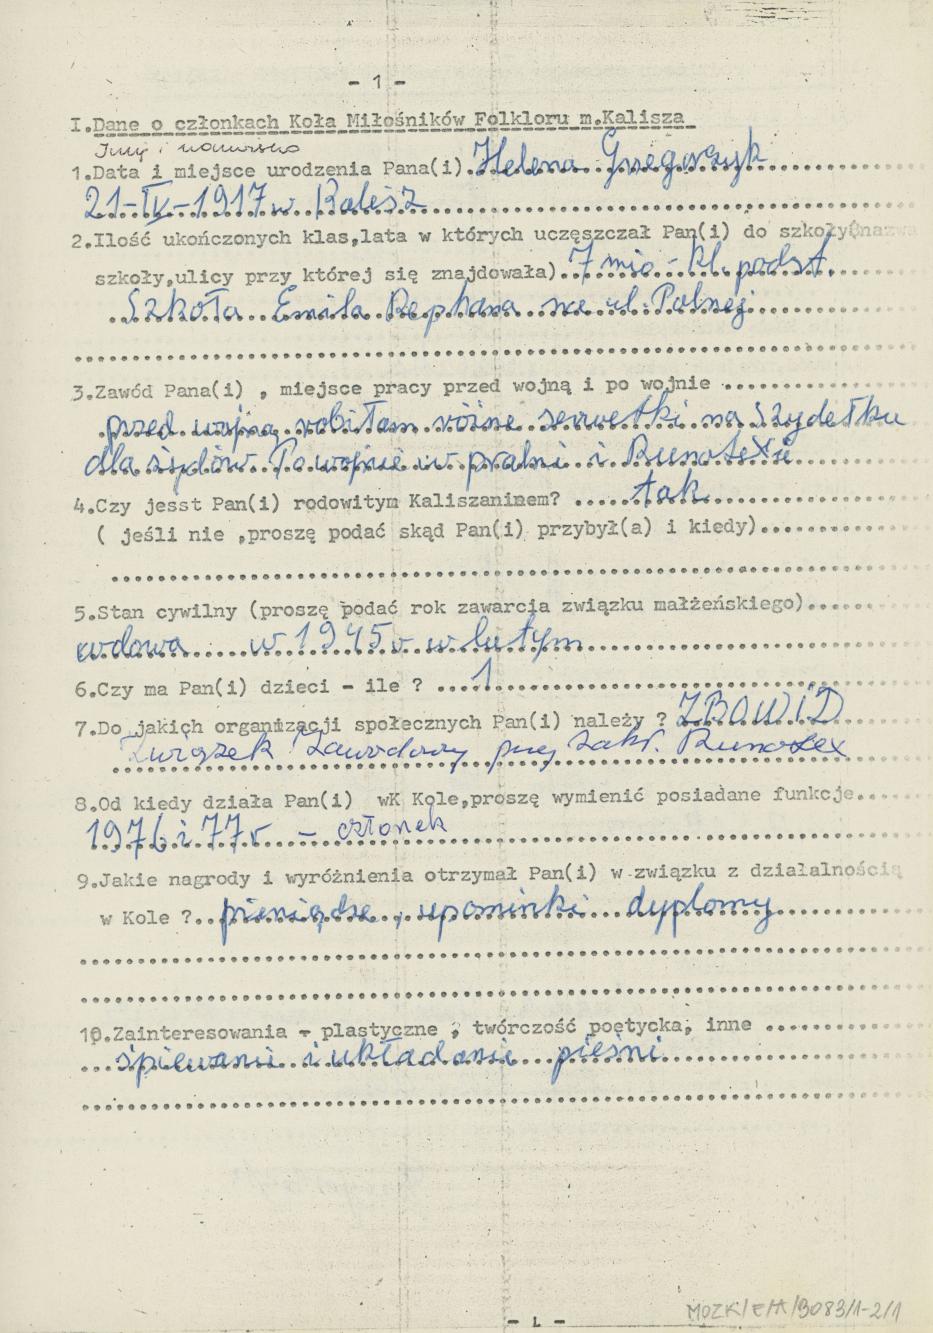 - 1 -
I.Dane o członkach Koła Miłośników Folkloru m.Kalisza
Imię i nazwisko
1.Data i miejsce urodzenia Pana(i) Helena Grzegorczyk
21-IV-1917 w Kalisz
2.Ilość ukończonych klas,lata w których uczęszczał Pan(i) do szkoły(nazwa
szkoły,ulicy przy której się znajdowała) 7mio-kl. podst.
Szkoła Emila Rephana na ul. Polnej
3.Zawód Pana(i) , miejsce pracy przed wojną i po wojnie
przed wojną robiłam różne serwetki na Szydełku
dla żydów Po wojnie w pralni i Runotexie
4.Czy jesst Pan(i) rodowitym Kaliszaninem? tak
( jeśli nie ,proszę podać skąd Pan(i) przybył(a) i kiedy)
5.Stan cywilny (proszę podać rok zawarcia związku małżeńskiego)
wdowa w 1945 r w lutym
6.Czy ma Pan(i) dzieci - ile ? 1
7.Do jakich organizacji społecznych Pan(i) należy ? ZBOWiD
Związek Zawodowy przy Zakł. Runotex
8.Od kiedy działa Pan(i) wK Kole,proszę wymienić posiadane funkcje
1976 i 77 r - członek
9.Jakie nagrody i wyróżnienia otrzymał Pan(i) w związku z działalnością
w Kole ? pieniądze, upominki dyplomy
10.Zainteresowania - plastyczne , twórczość poetycka, inne
śpiewanie i układanie pieśni
MOZK/E/A/3083/1-2/1
- 1 -